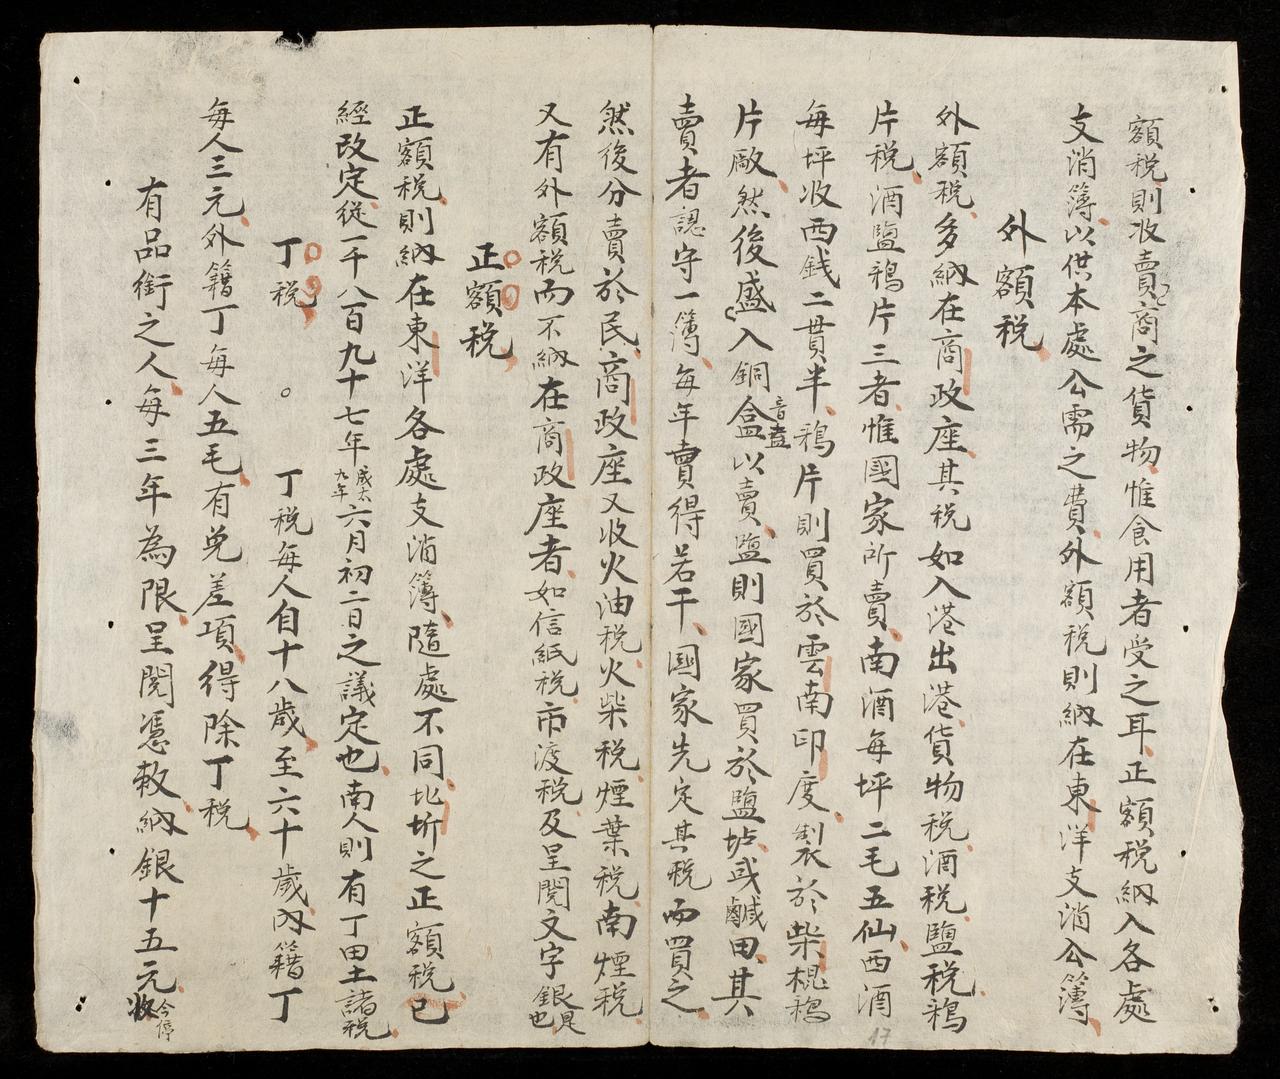 額税則收賣商之貨物惟食用者受之耳正額税納入各處
支消簿以供本處公需之費外額税則納在東洋支消公簿
外額税
外額税多納在商政座其税如入港出港貨物税酒税鹽税鴉
片税酒鹽鴉片三者惟國家所賣南酒每坪二毛五仙西酒
每坪收西銭二貫半鴉片則買於雲南印度製於柴棍鴉
片廠然後盛入銅盒音壺以賣鹽則國家買於鹽坫或鹹田其
賣者認守一簿每年賣得若干國家先定其税而買之
然後分賣於民商政座又收火油税火柴税煙葉税南煙税
又有外額税而不納在商政座者如信紙税市渡税及呈閱文字銀是也
正額税
正額税則納在東洋各處支消簿隨處不同北圻之正額税已
經改定從一千八百九十七年成太九年六月初二日之議定也南人則有丁田土諸税
丁税 。 丁税每人自十八歲至六十歲内籍丁
每人三元外籍丁每人五毛有免差項得除丁税
有品銜之人每三年為限呈閱憑敕納銀十五元今停收
17